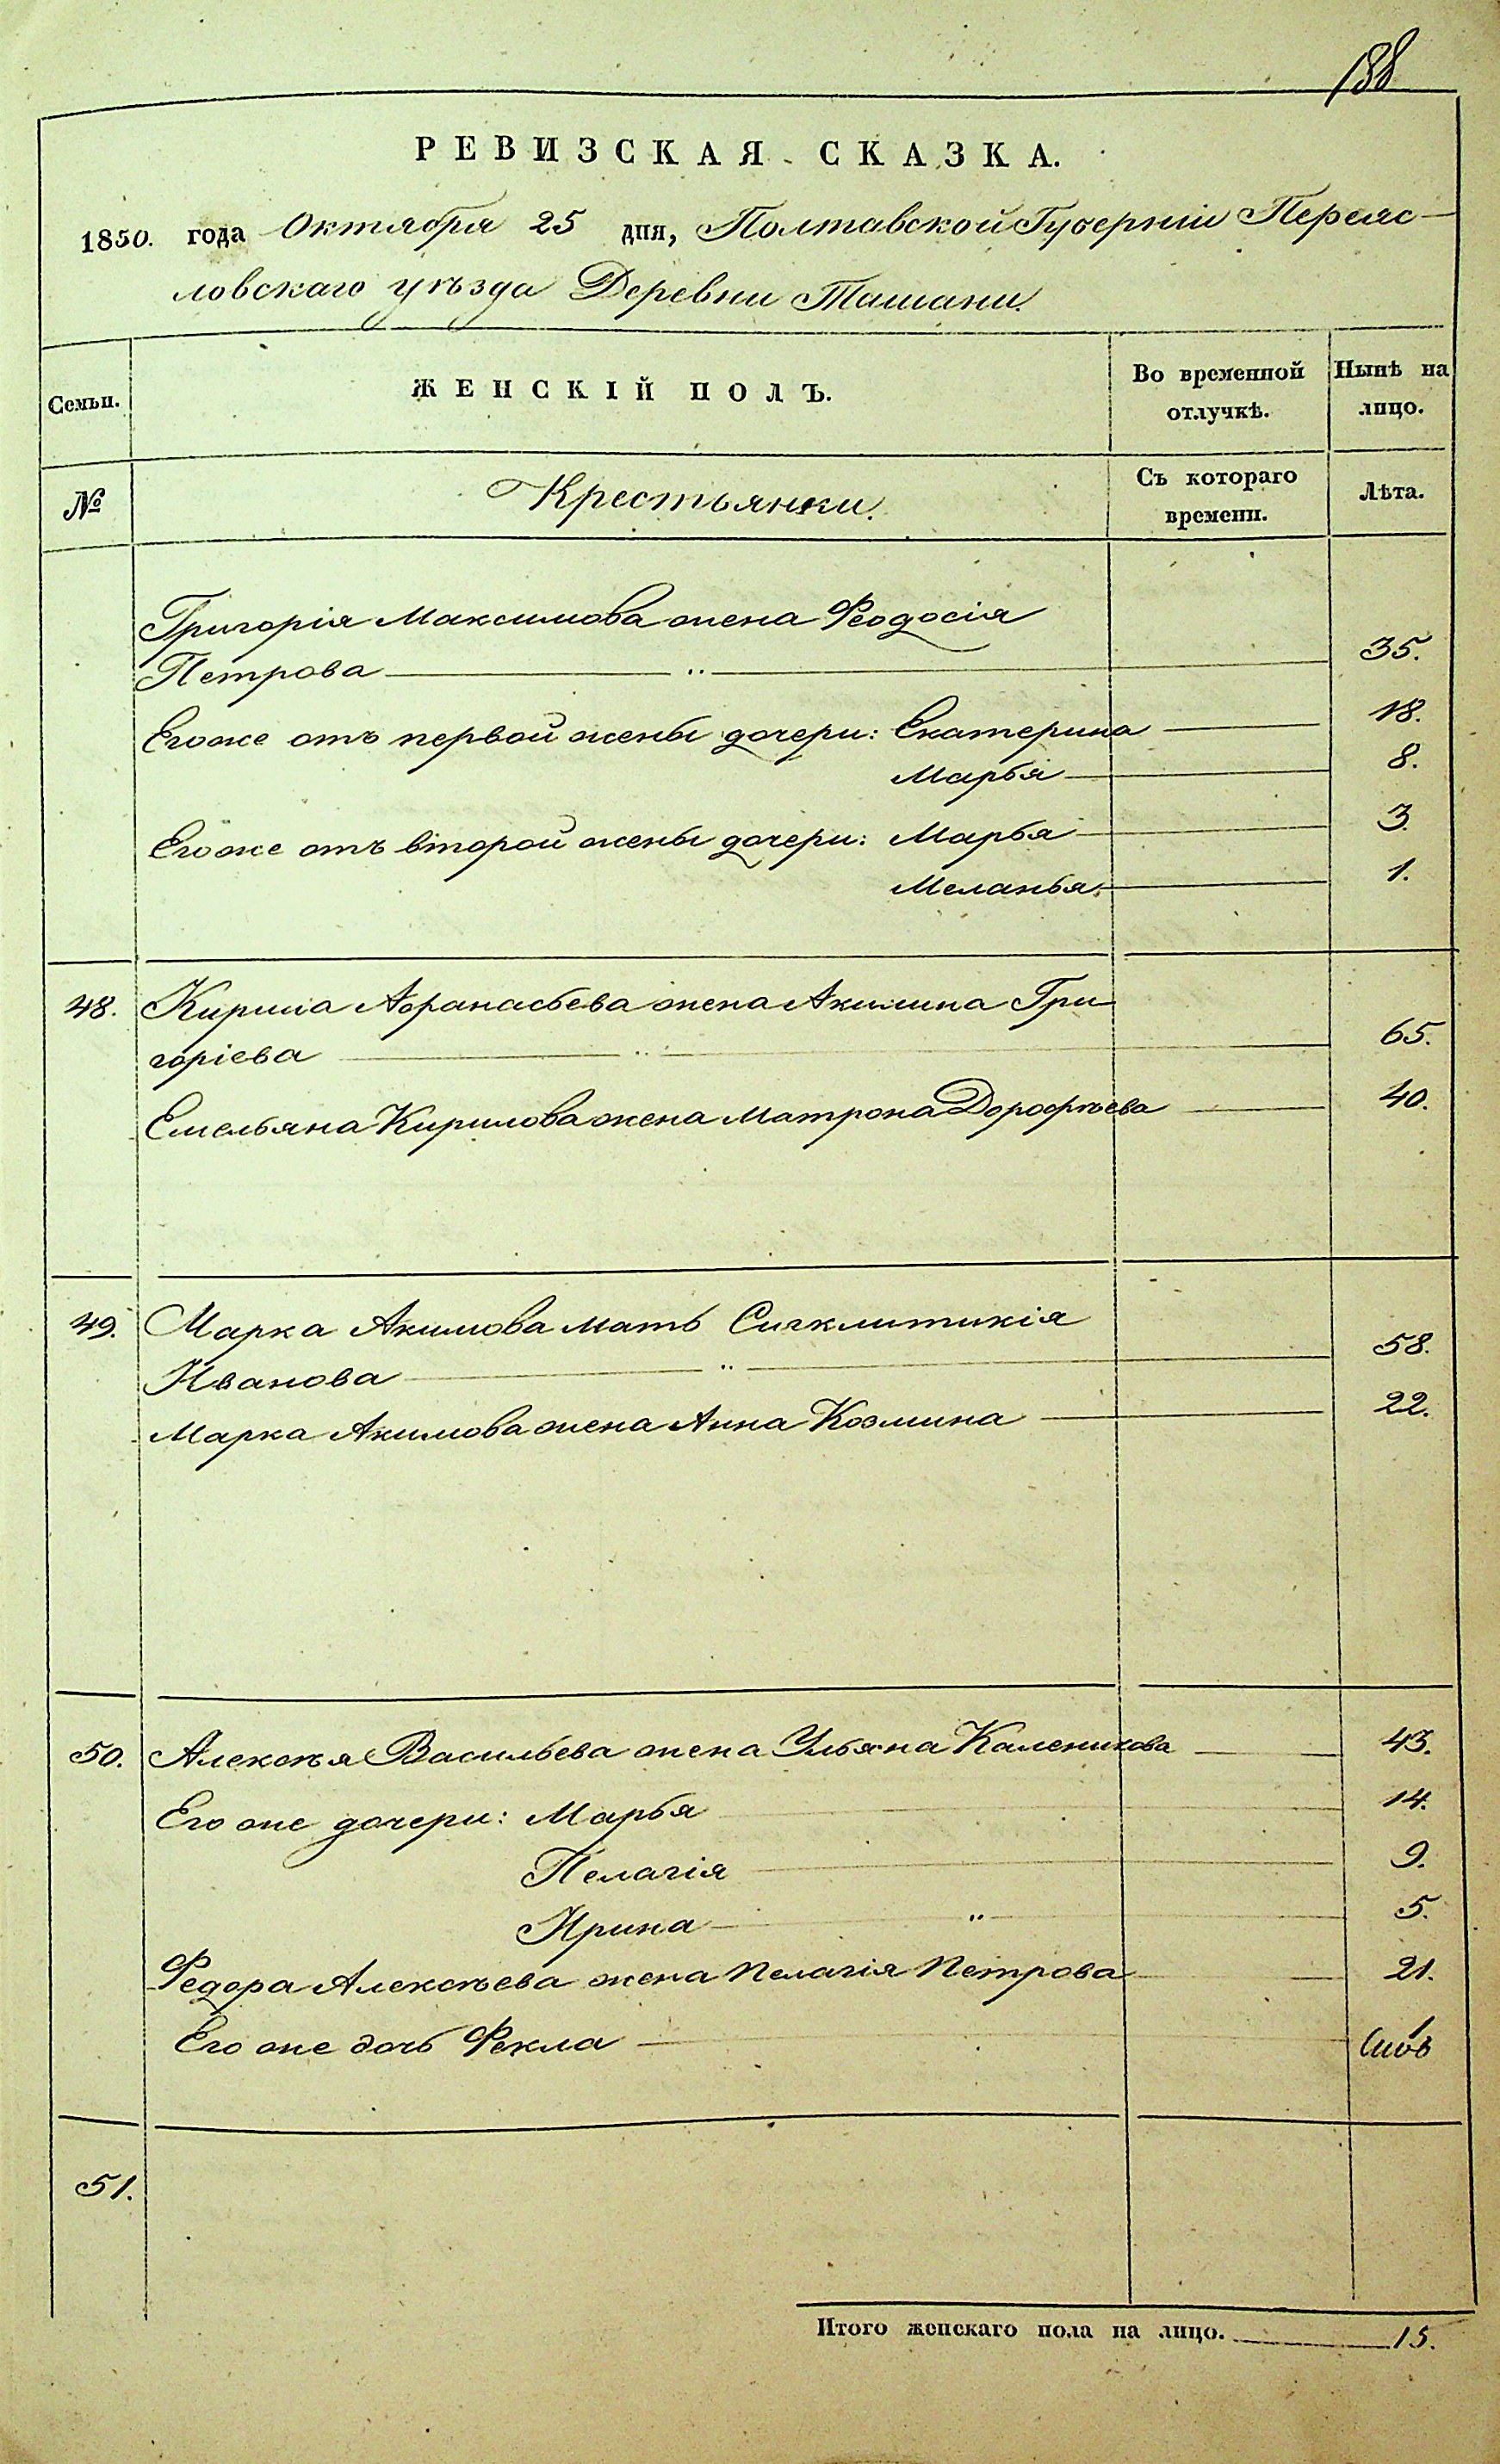 188
РЕВИЗСКАЯ СКАЗКА.
1850. года Октября 25 дня, Полтавской Губерніи Переяс-
ловскаго уѣзда Деревни Ташани.
Семьи. ЖЕНСКІЙ ПОЛЪ. Во временной отлучкѣ. Нынѣ на лицо.
№ Крестьянки. Съ котораго времени. Лѣта.
Григорія Максимова жена Феодосія
Петрова — " — 35.
Его же отъ первой жены дочери: Екатерина — 18.
Марья — 8.
Его же отъ второй жены дочери: Марья — 3.
Меланья. — 1.
48. Кирила Афанасьева жена Акилина Гри-
горіева — " — 65.
Емельяна Кирилова жена Матрона Дорофѣева — 40.
49. Марка Акимова мать Сигклитикія
Иванова — " — 58.
Марка Акимова жена Анна Козмина — 22.
50. Алексѣя Васильева жена Ульяна Каленикова — 43.
Его же дочери: Марья — 14.
Пелагія — 9.
Ирина — " — 5.
Федора Алексѣева жена Пелагія Петрова — 21.
Его же дочь Фекла — 1
51.
Итого женскаго пола на лицо. 15.